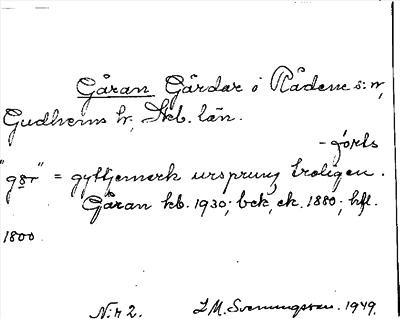 Gåran Gårdar i Rådene s:n,
Gudhems hr, Skb. län.
- forts
"går" = gyttjemark ursprung troligen.
Gåran kb. 1930; bek, ek. 1880; hfl.
1800
N:r 2. L.M. Svenungsson. 1949.